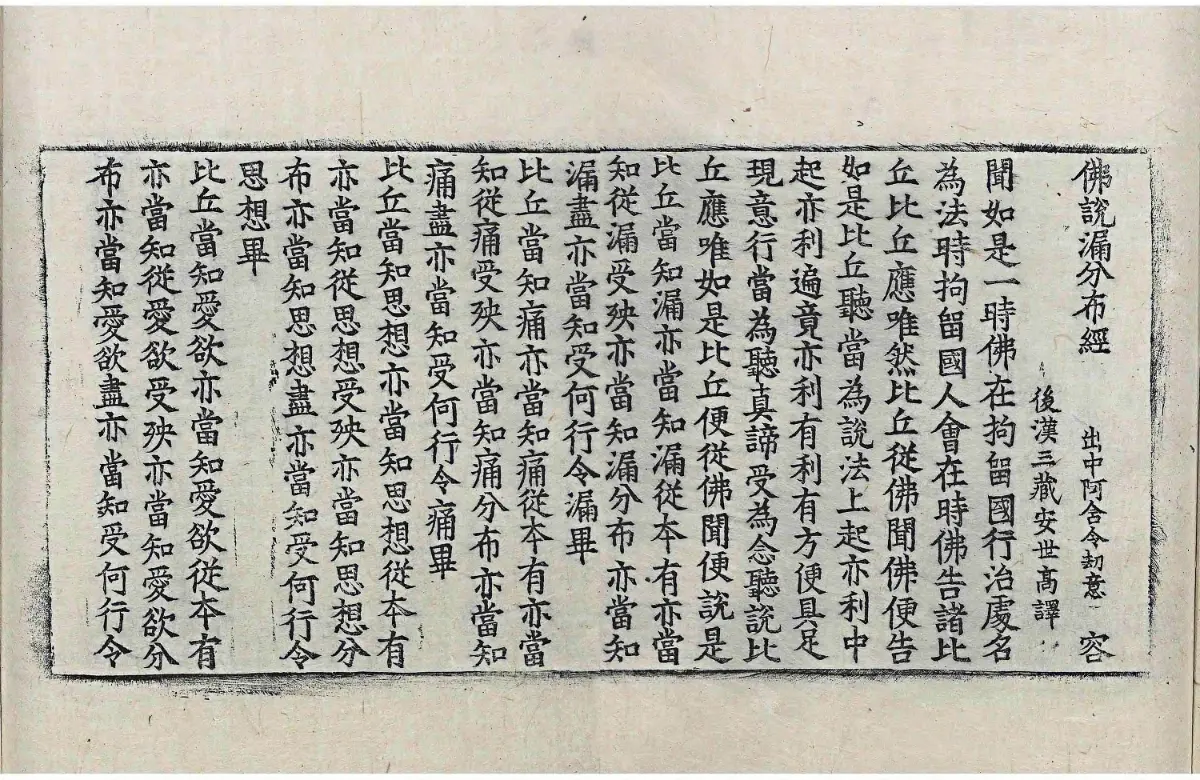 佛說漏分布經 出中阿含令劫意 容
後漢三藏安世髙譯
聞如是一時佛在拘留國行治處名
為法時拘留國人會在時佛告諸比
丘比丘應唯然比丘從佛聞佛便告
如是比丘聽當為說法上起亦利中
起亦利遍竟亦利有利有方便具足
現意行當為聽真諦受為念聽說比
丘應唯如是比丘便從佛聞便說是
比丘當知漏亦當知漏從本有亦當
知從漏受殃亦當知漏分布亦當知
漏盡亦當知受何行令漏畢
比丘當知痛亦當知痛從本有亦當
知從痛受殃亦當知痛分布亦當知
痛盡亦當知受何行令痛畢
比丘當知思想亦當知思想從本有
亦當知從思想受殃亦當知思想分
布亦當知思想盡亦當知受何行令
思想畢
比丘當知愛欲亦當知愛欲從本有
亦當知從愛欲受殃亦當知愛欲分
布亦當知愛欲盡亦當知受何行令